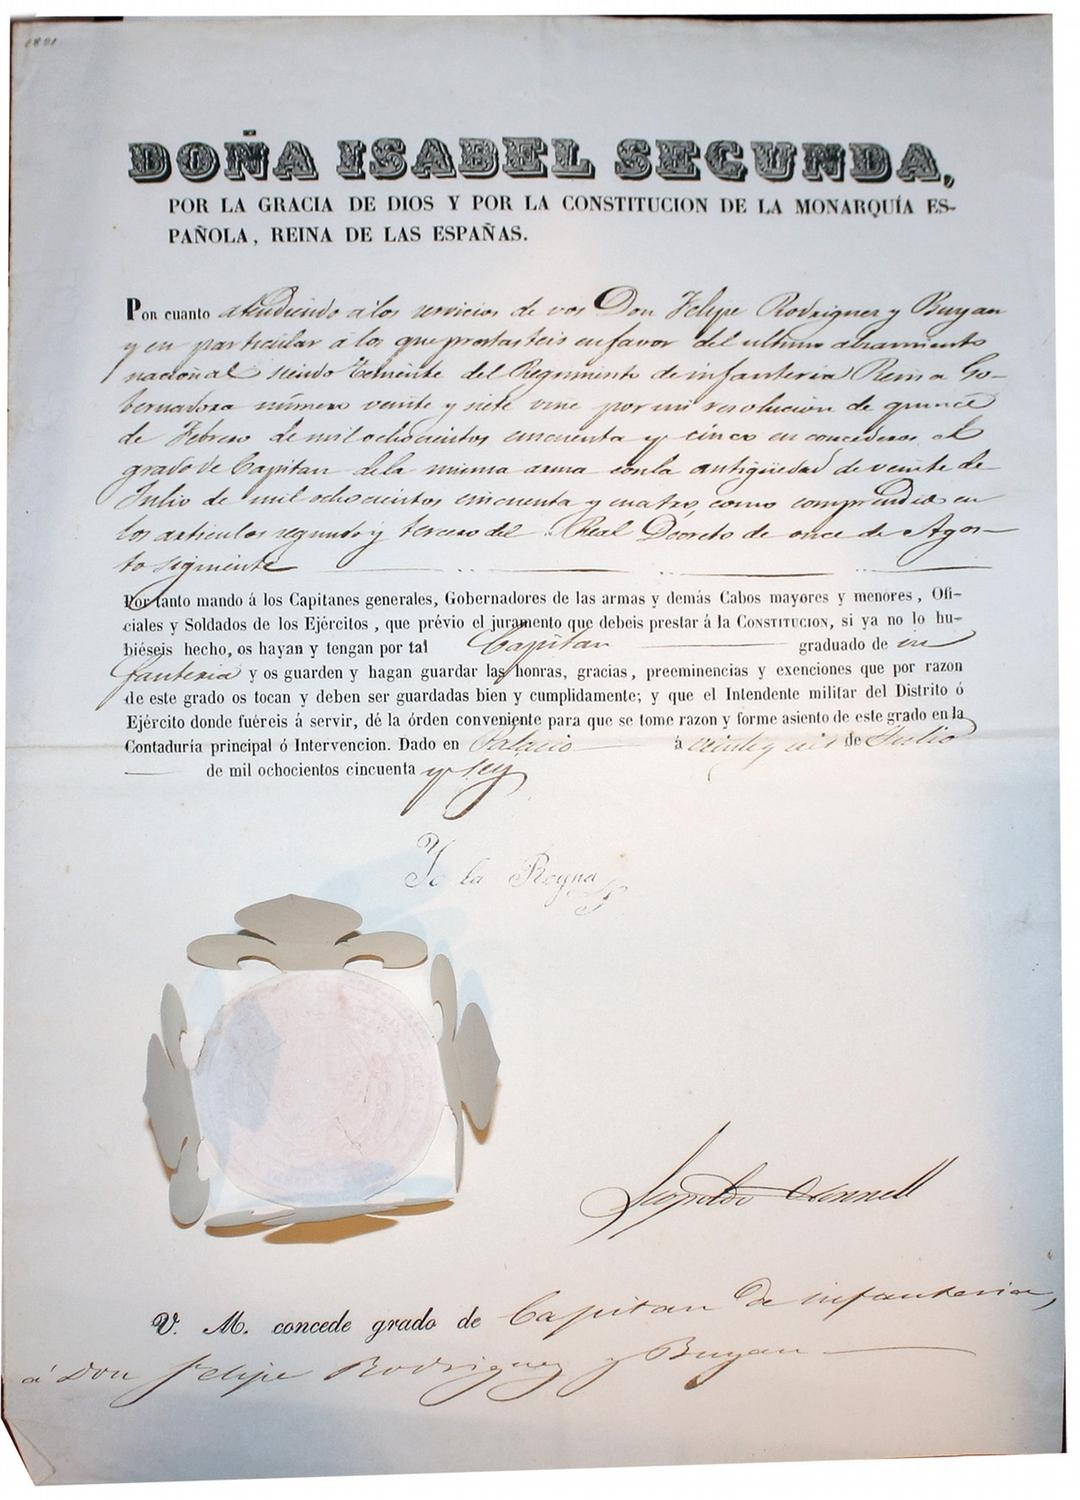 DOÑA ISABEL SEGUNDA,
POR LA GRACIA DE DIOS Y POR LA CONSTITUCION DE LA MONARQUÍA ES-
PAÑOLA, REINA DE LAS ESPAÑAS.
Por cuanto atendiendo á los servicios de vos Don Felipe Rodriguez y Buyan
y en particular á los que prestasteis en favor del ultimo alzamiento
nacional siendo teniente del Regimiento de infanteria Reina Go-
bernadora número veinte y siete vine por mi resolucion de quince
de Febrero de mil ochocientos cincuenta y cinco en concederos el
grado de Capitan de la misma arma con la antigüedad de veinte de
Julio de mil ochocientos cincuenta y cuatro, como comprendido en
los articulos segundo y tercero del Real Decreto de once de Agos-
to siguiente
Por tanto mando á los Capitanes generales, Gobernadores de las armas y demás Cabos mayores y menores, Ofi-
ciales y Soldados de los Ejércitos, que prévio el juramento que debeis prestar á la CONSTITUCION, si ya no lo hu-
biéseis hecho, os hayan y tengan por tal Capitan graduado de in
fanteria y os guarden y hagan guardar las honras, gracias, preeminencias y exenciones que por razon
de este grado os tocan y deben ser guardadas bien y cumplidamente; y que el Intendente militar del Distrito ó
Ejército donde fuéreis á servir, dé la órden conveniente para que se tome razon y forme asiento de este grado en la
Contaduría principal ó Intervencion. Dado en Palacio á veinte y seis de Julio
de mil ochocientos cincuenta y sey
Yo la Reyna
Leopoldo Odonnell
V. M. concede grado de Capitan de infanteria,
á Don Felipe Rodriguez y Buyan